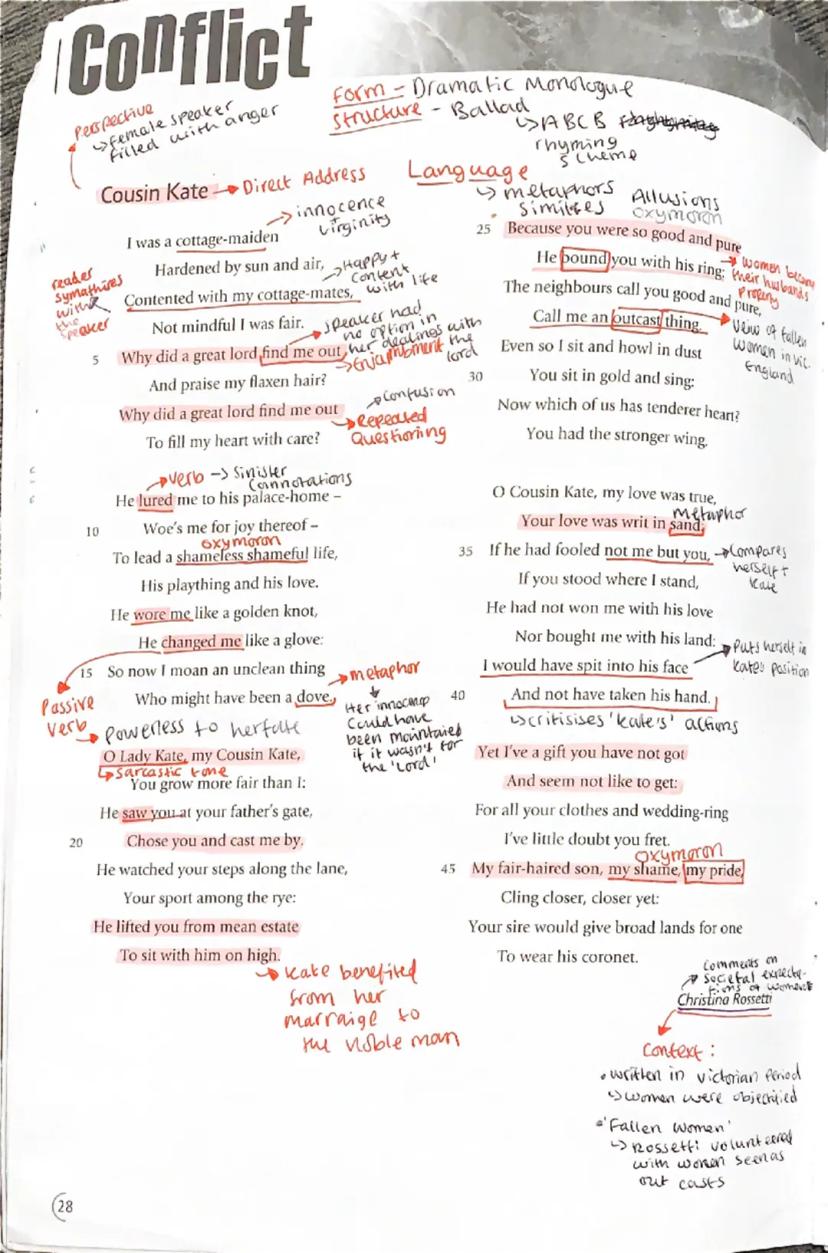 Conflict
Form = Dramatic Monologue
Structure - Ballad
↳ ABCB
rhyming
scheme
Perspective
↳ female speaker
filled with anger
Cousin Kate → Direct Address
Language
↳ metaphors
similies
Allusions
oxymoron
→ innocence
+
virginity
I was a cottage-maiden
Hardened by sun and air,
→ Happy +
content
with life
Contented with my cottage-mates,
reader
symathires
with
the
speaker
Not mindful I was fair.
→ speaker had
no option in
her dealings with
the
lord
5 Why did a great lord find me out,
→ Enjambment
And praise my flaxen hair?
→ confusion
Why did a great lord find me out
→ Repeated
Questioning
To fill my heart with care?
→ verb → sinister
connotations
He lured me to his palace-home –
10 Woe's me for joy thereof –
oxymoron
To lead a shameless shameful life,
His plaything and his love.
He wore me like a golden knot,
He changed me like a glove:
15 So now I moan an unclean thing
→ metaphor
Who might have been a dove.
Her innocence
could have
been mountaied
if it wasn't for
the 'Lord'
Passive
verb
→ powerless to her fate
O Lady Kate, my Cousin Kate,
↳ sarcastic tone
You grow more fair than I:
He saw you at your father's gate,
20 Chose you and cast me by.
He watched your steps along the lane,
Your sport among the rye:
He lifted you from mean estate
To sit with him on high.
→ Kate benefited
from her
marraige to
the noble man
25 Because you were so good and pure
He bound you with his ring:
→ women become
their husbands
property
The neighbours call you good and pure,
Call me an outcast thing.
→ view of fallen
women in vic.
England
Even so I sit and howl in dust
30 You sit in gold and sing:
Now which of us has tenderer heart?
You had the stronger wing.
O Cousin Kate, my love was true,
metaphor
Your love was writ in sand:
35 If he had fooled not me but you,
→ compares
herself +
Kate
If you stood where I stand,
He had not won me with his love
Nor bought me with his land:
→ Puts herself in
Kate's position
I would have spit into his face
40 And not have taken his hand.
↳ critisises 'Kate's' actions
Yet I've a gift you have not got
And seem not like to get:
For all your clothes and wedding-ring
I've little doubt you fret.
oxymoron
45 My fair-haired son, my shame, my pride,
Cling closer, closer yet:
Your sire would give broad lands for one
To wear his coronet.
comments on
societal expecta-
tions of women
Christina Rossetti
Context:
• written in Victorian Period
↳ women were objectified
• 'Fallen Women'
↳ Rossetti volunteered
with women seen as
out casts
28